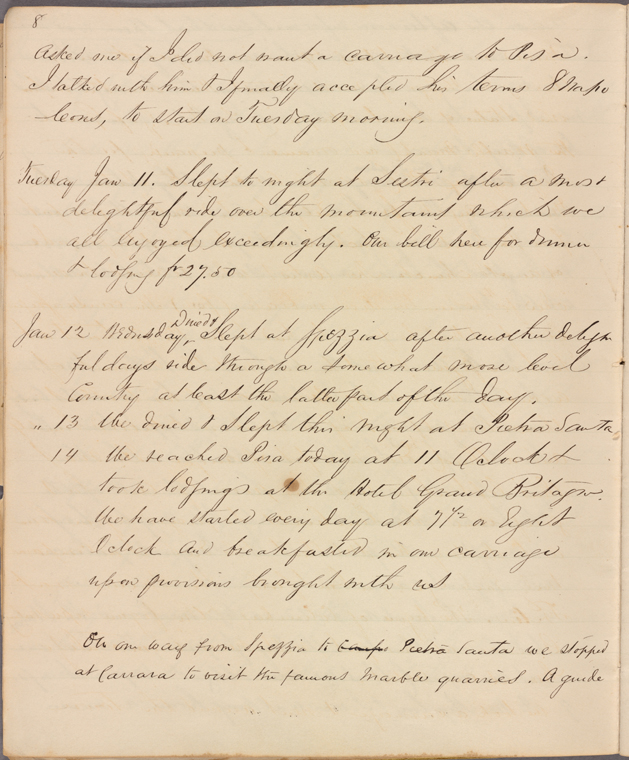 8
asked me if I did not want a carriage to Pisa.
I talked with him & I finally accepted his terms 8 Napo
leons, to start on Tuesday morning.
Tuesday Jan 11. Slept to night at Sestri after a most
delightful ride over the mountains which we
all enjoyed exceedingly. Our bill here for dinner
& lodging fr 27.50
Jan 12 Wednsday, Dined & Slept at Spezzia after another deligh
ful days ride through a somewhat more level
Country at least the latter part of the day.
" 13 We dined & slept this night at Pietra Santa
14 We reached Pisa today at 11 Oclock &
took lodgings at the Hotel Grand Britagne.
We have started every day at 7 1/2 or Eight
Oclock and breakfasted in our carriage
upon provisions brought with us
On our way from Spezzia to Pietra Santa we stopped
at Carrara to visit the famous Marble quarries. A guide